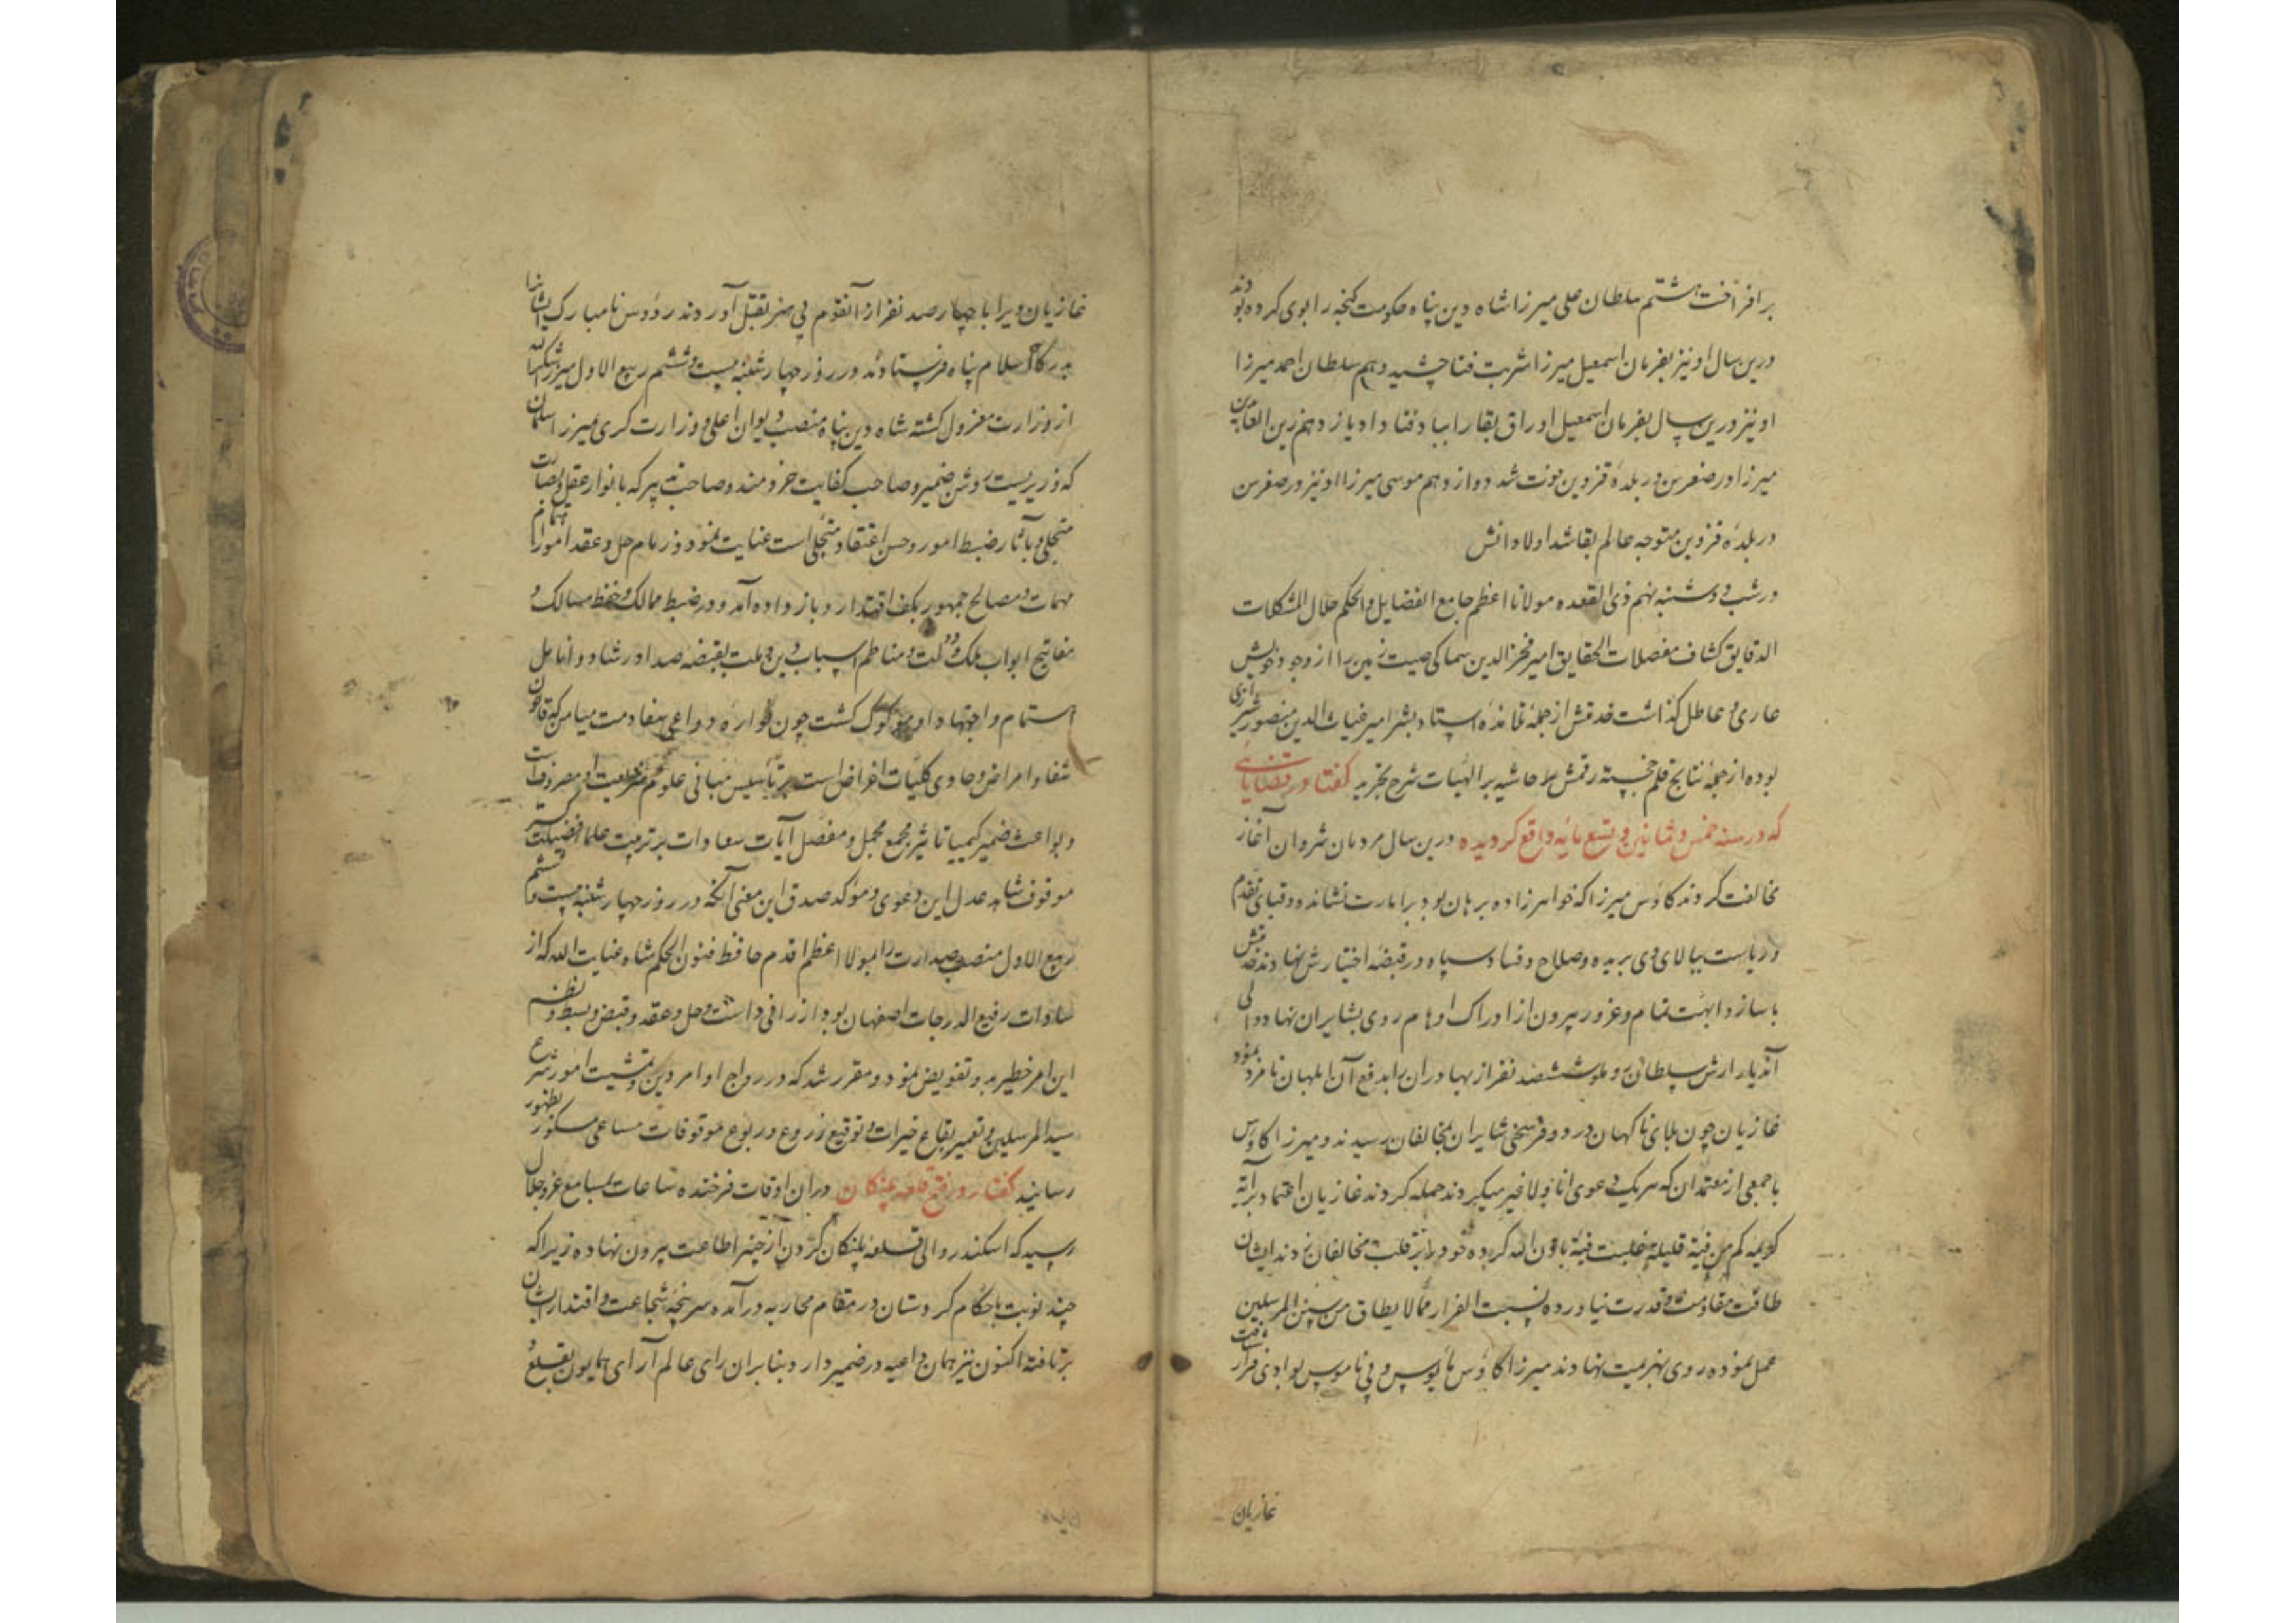 برافراخت هشتم سلطان علی میرزا شاه دین پناه حکومت کنجه را بوی کرده بودند
درین سال او نیز بفرمان اسمعیل میرزا شربت فنا چشید دهم سلطان احمد میرزا
او نیز درین سال بفرمان اسمعیل اوراق بقا را بباد فنا داد یازدهم زین العابدین
میرزا در صغر سن در بلدهٔ قزوین فوت شد دوازدهم موسی میرزا او نیز در صغر سن
در بلدهٔ قزوین متوجه عالم بقا شد اولاد انش
در شب دوشنبه نهم ذی القعده مولانا اعظم جامع الفضایل والحکم حلال المشکلات
الدقایق کشاف معضلات الحقایق امیر فخرالدین سماکی صیت زمین را از وجود خویش
عاری و عاطل کذاشت خدمتش از جملهٔ تلامذهٔ استاد بشر امیر غیاث الدین منصور شیرازی
بوده از جملهٔ نتایج قلم خجسته رقمش حاشیه بر الهیات شرح تجرید کفتار در قضایائی
که در سنه خمس و ثمانین و تسع مائه واقع کردیده درین سال مردمان شروان آغاز
مخالفت کردند کاوس میرزا که خواهرزاده برهان بود بر امارت نشانده و قبای تقدم
و ریاست ببالای وی بریده و صلاح و فساد سپاه در قبضهٔ اختیارش نهادند
با ساز و ابهت تمام و غرور بیرون از ادراک اوهام روی بشابران نهاد والی
آندیار ارش سلطان روملو ششصد نفر از بهادران را بدفع آن ابلهان نامزد نمود
غازیان چون بلای ناکهان در دو فرسخی شابران بمخالفان رسیدند و میرزا کاوس
با جمعی از معتمدان که هر یک دعوی انا و لا غیر میکردند حمله کردند غازیان اعتماد بر آیه
کریمه کم من فیة قلیلة غلبت فیة باذن الله کرده خود را بر قلب مخالفان زدند ایشان
طاقت مقاومت و قدرت نیاورده بسبت الفرار مما لا یطاق من سنن المرسلین
عمل نموده روی بهزیمت نهادند میرزا کاوس مأیوس و بی ناموس بوادی فرار شتافت
غازیان
غازیان ویرا با چهار صد نفر از آنقوم بی هنر بقتل آوردند رؤوس نامبارک ایشانرا
بدرکاه اسلام پناه فرستادند و در روز چهارشنبه بیست و ششم ربیع الاول میرزا شکرالله
از وزارت معزول کشته شاه دین پناه منصب دیوان اعلی و وزارت کری میرزا سلمان
که وزیریست روشن ضمیر و صاحب کفایت خردمند و صاحب تدبیر که بانوار عقل و بصارت
متجلی و بآثار ضبط امور و حسن اعتقاد متحلی است عنایت نمود و زمام حل و عقد امور انام
مهمات و مصالح جمهور بکف اقتدار او باز داده آمد و در ضبط ممالک و حفظ مسالک و
مفاتیح ابواب ملک و دولت و مناظم اسباب دین و ملت بقبضهٔ صدارت ارشاد و انامل
اهتمام و اجتهاد او موکول کشت چون همواره دواعی میامن که قانون
شفاء امراض و حاوی کلیات اغراض است بر تأسیس مبانی علوم شریعت مصروفست
و بواعث ضمیر کیمیا تأثیر مجمع مجمل و مفصل آیات سعادات بر تربیت علماء فضیلت
موقوف شاهد عدل این دعوی و مؤکد صدق این معنی آنکه در روز چهارشنبه بیست و ششم
ربیع الاول منصب صدارت را بمولانا اعظم اقدم حافظ فنون الحکم شاه عنایت الله که از
سادات رفیع الدرجات اصفهان بود ارزانی داشت و حل و عقد و قبض و بسط و نظم
این امر خطیر بدو تفویض نمود و مقرر شد که در رواج اوامر دین و تمشیت امور شرع
سید المرسلین و تعمیر بقاع خیرات و توقیع زروع و ربوع موقوفات مساعی مشکور بظهور
رسانید کفتار در فتح قلعه پلنکان در ان اوقات فرخنده ساعات بمسامع عز و جلال
رسید که اسکندر والی قلعه پلنکان کردن از چنبر اطاعت بیرون نهاده زیرا که
چند نوبت با حکام کردستان در مقام محاربه درآمده سرپنجهٔ شجاعت و اقتدار ایشان
برتافته اکنون نیز همان داعیه در ضمیر دارد بنابران رای عالم آرای همایون بقلع و